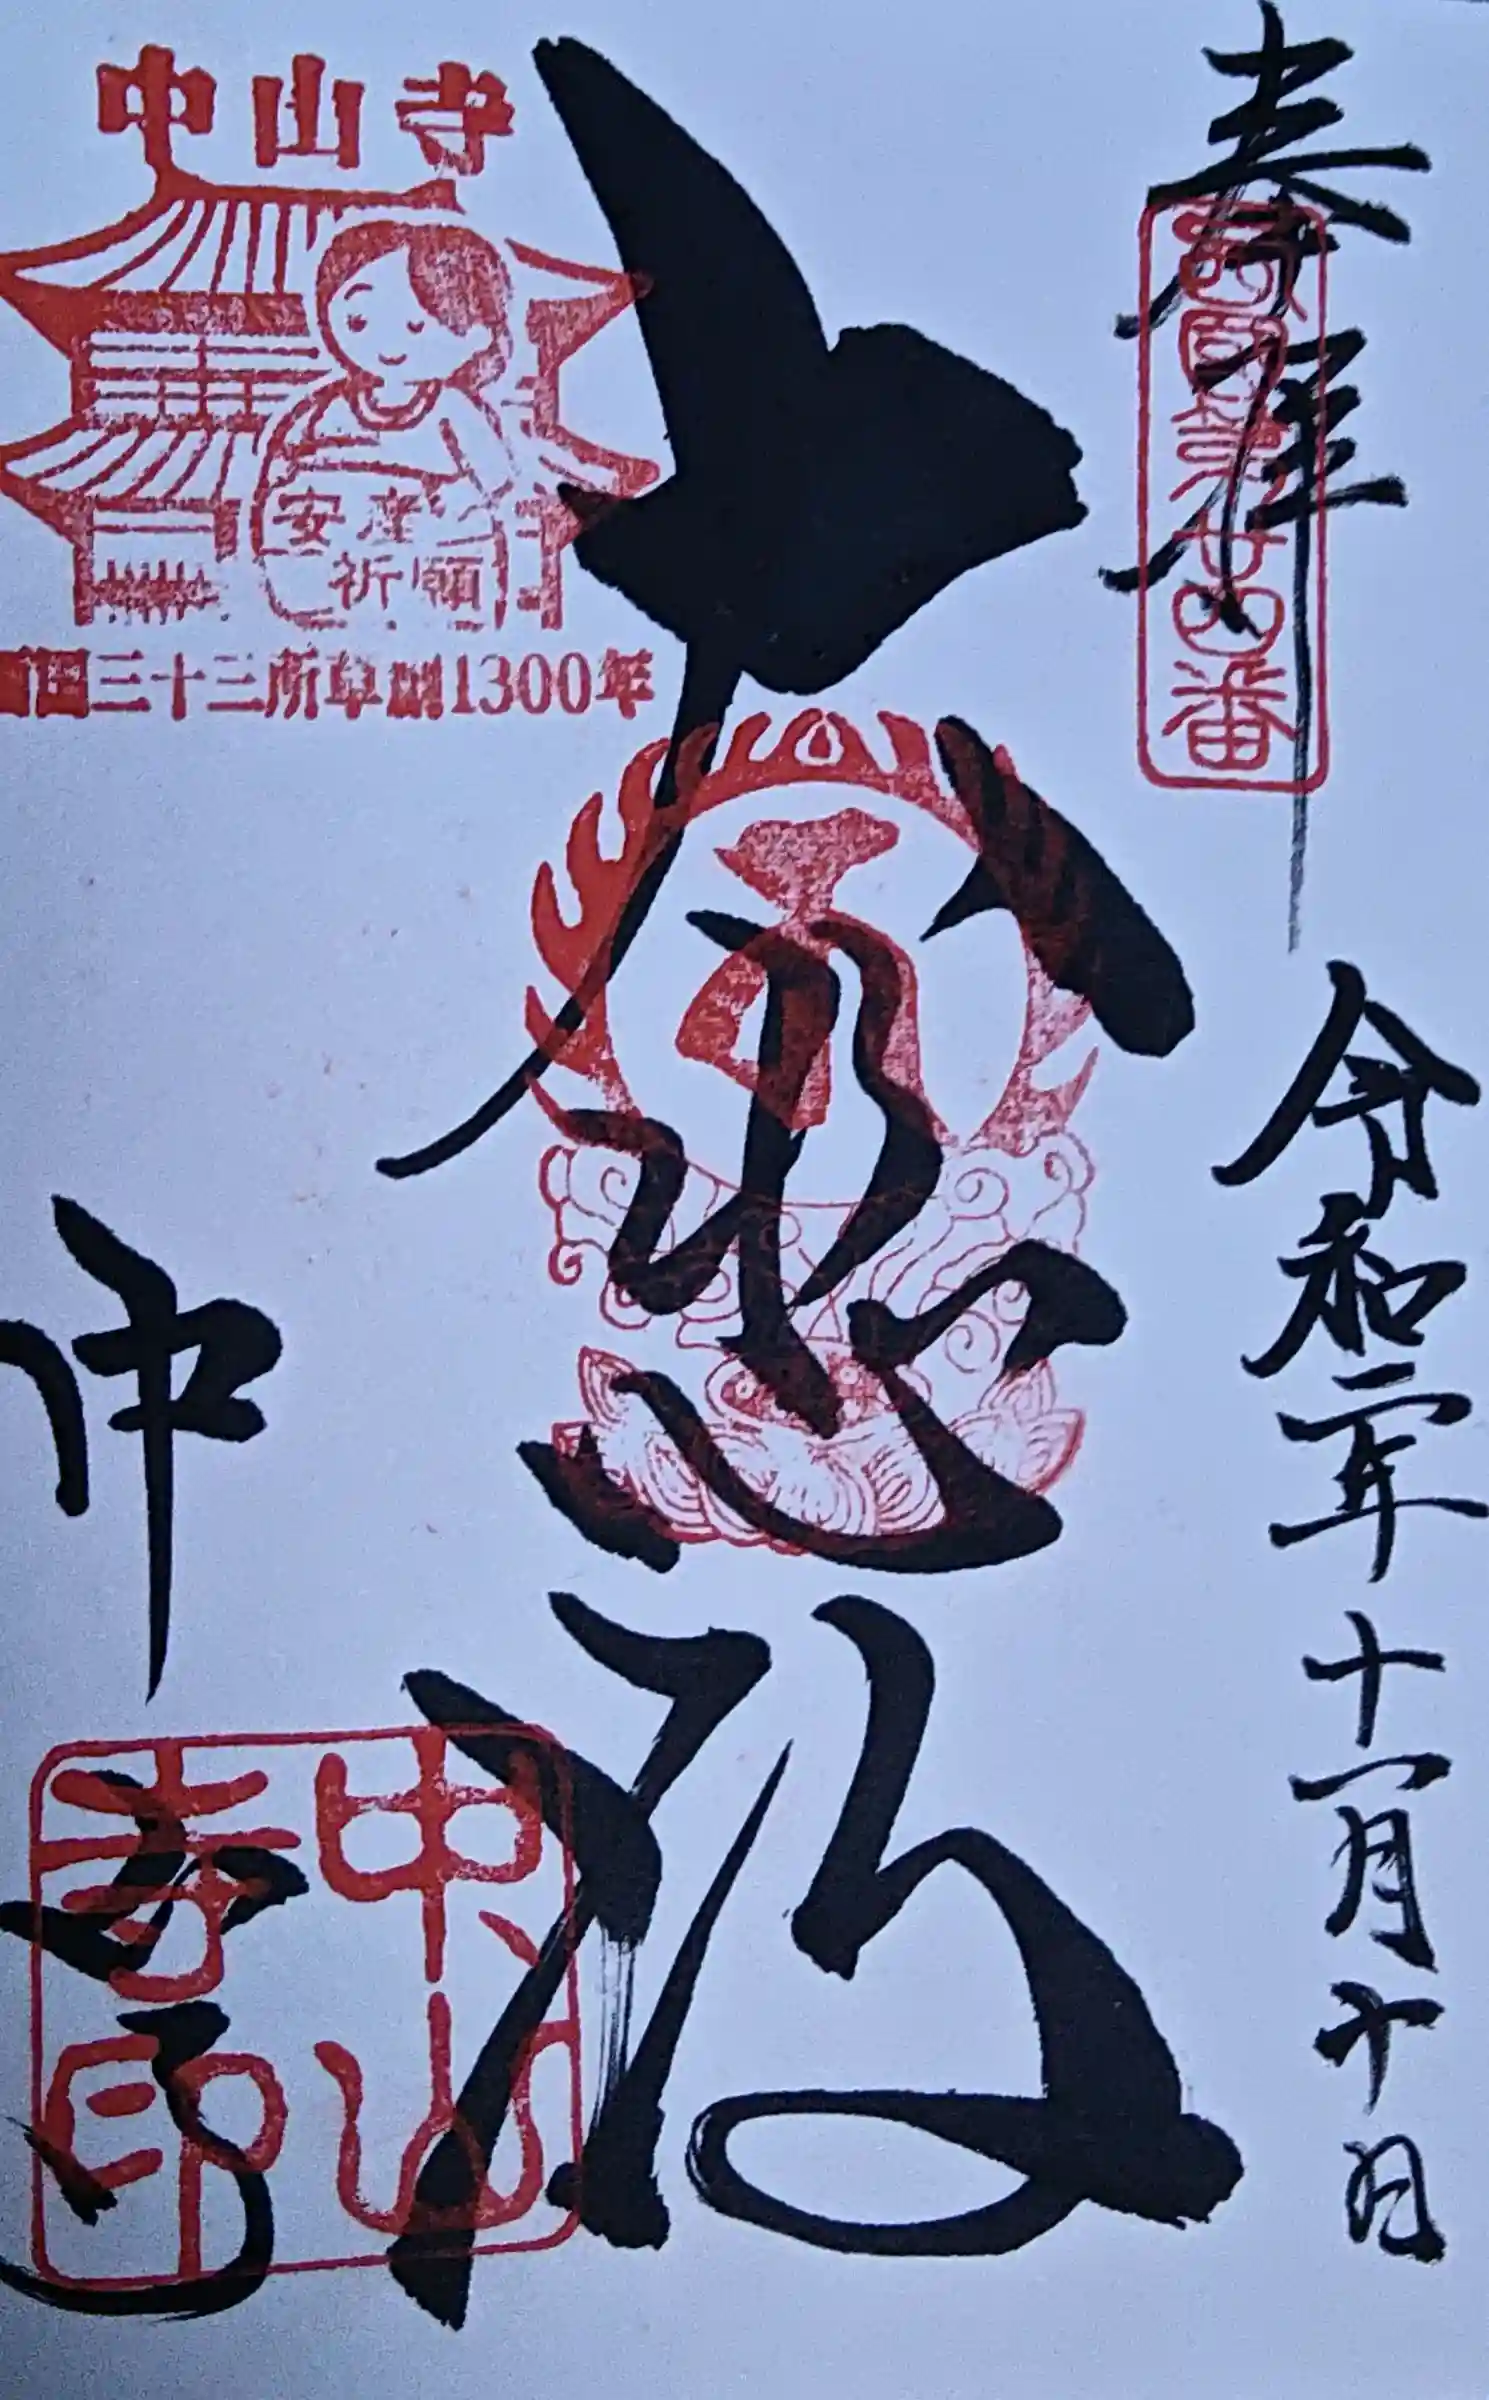 奉拝
西国第廿四番
令和二年十一月十日
大悲殿
中山寺
安産
祈願
国三十三所草創1300年
中山寺
中山寺印